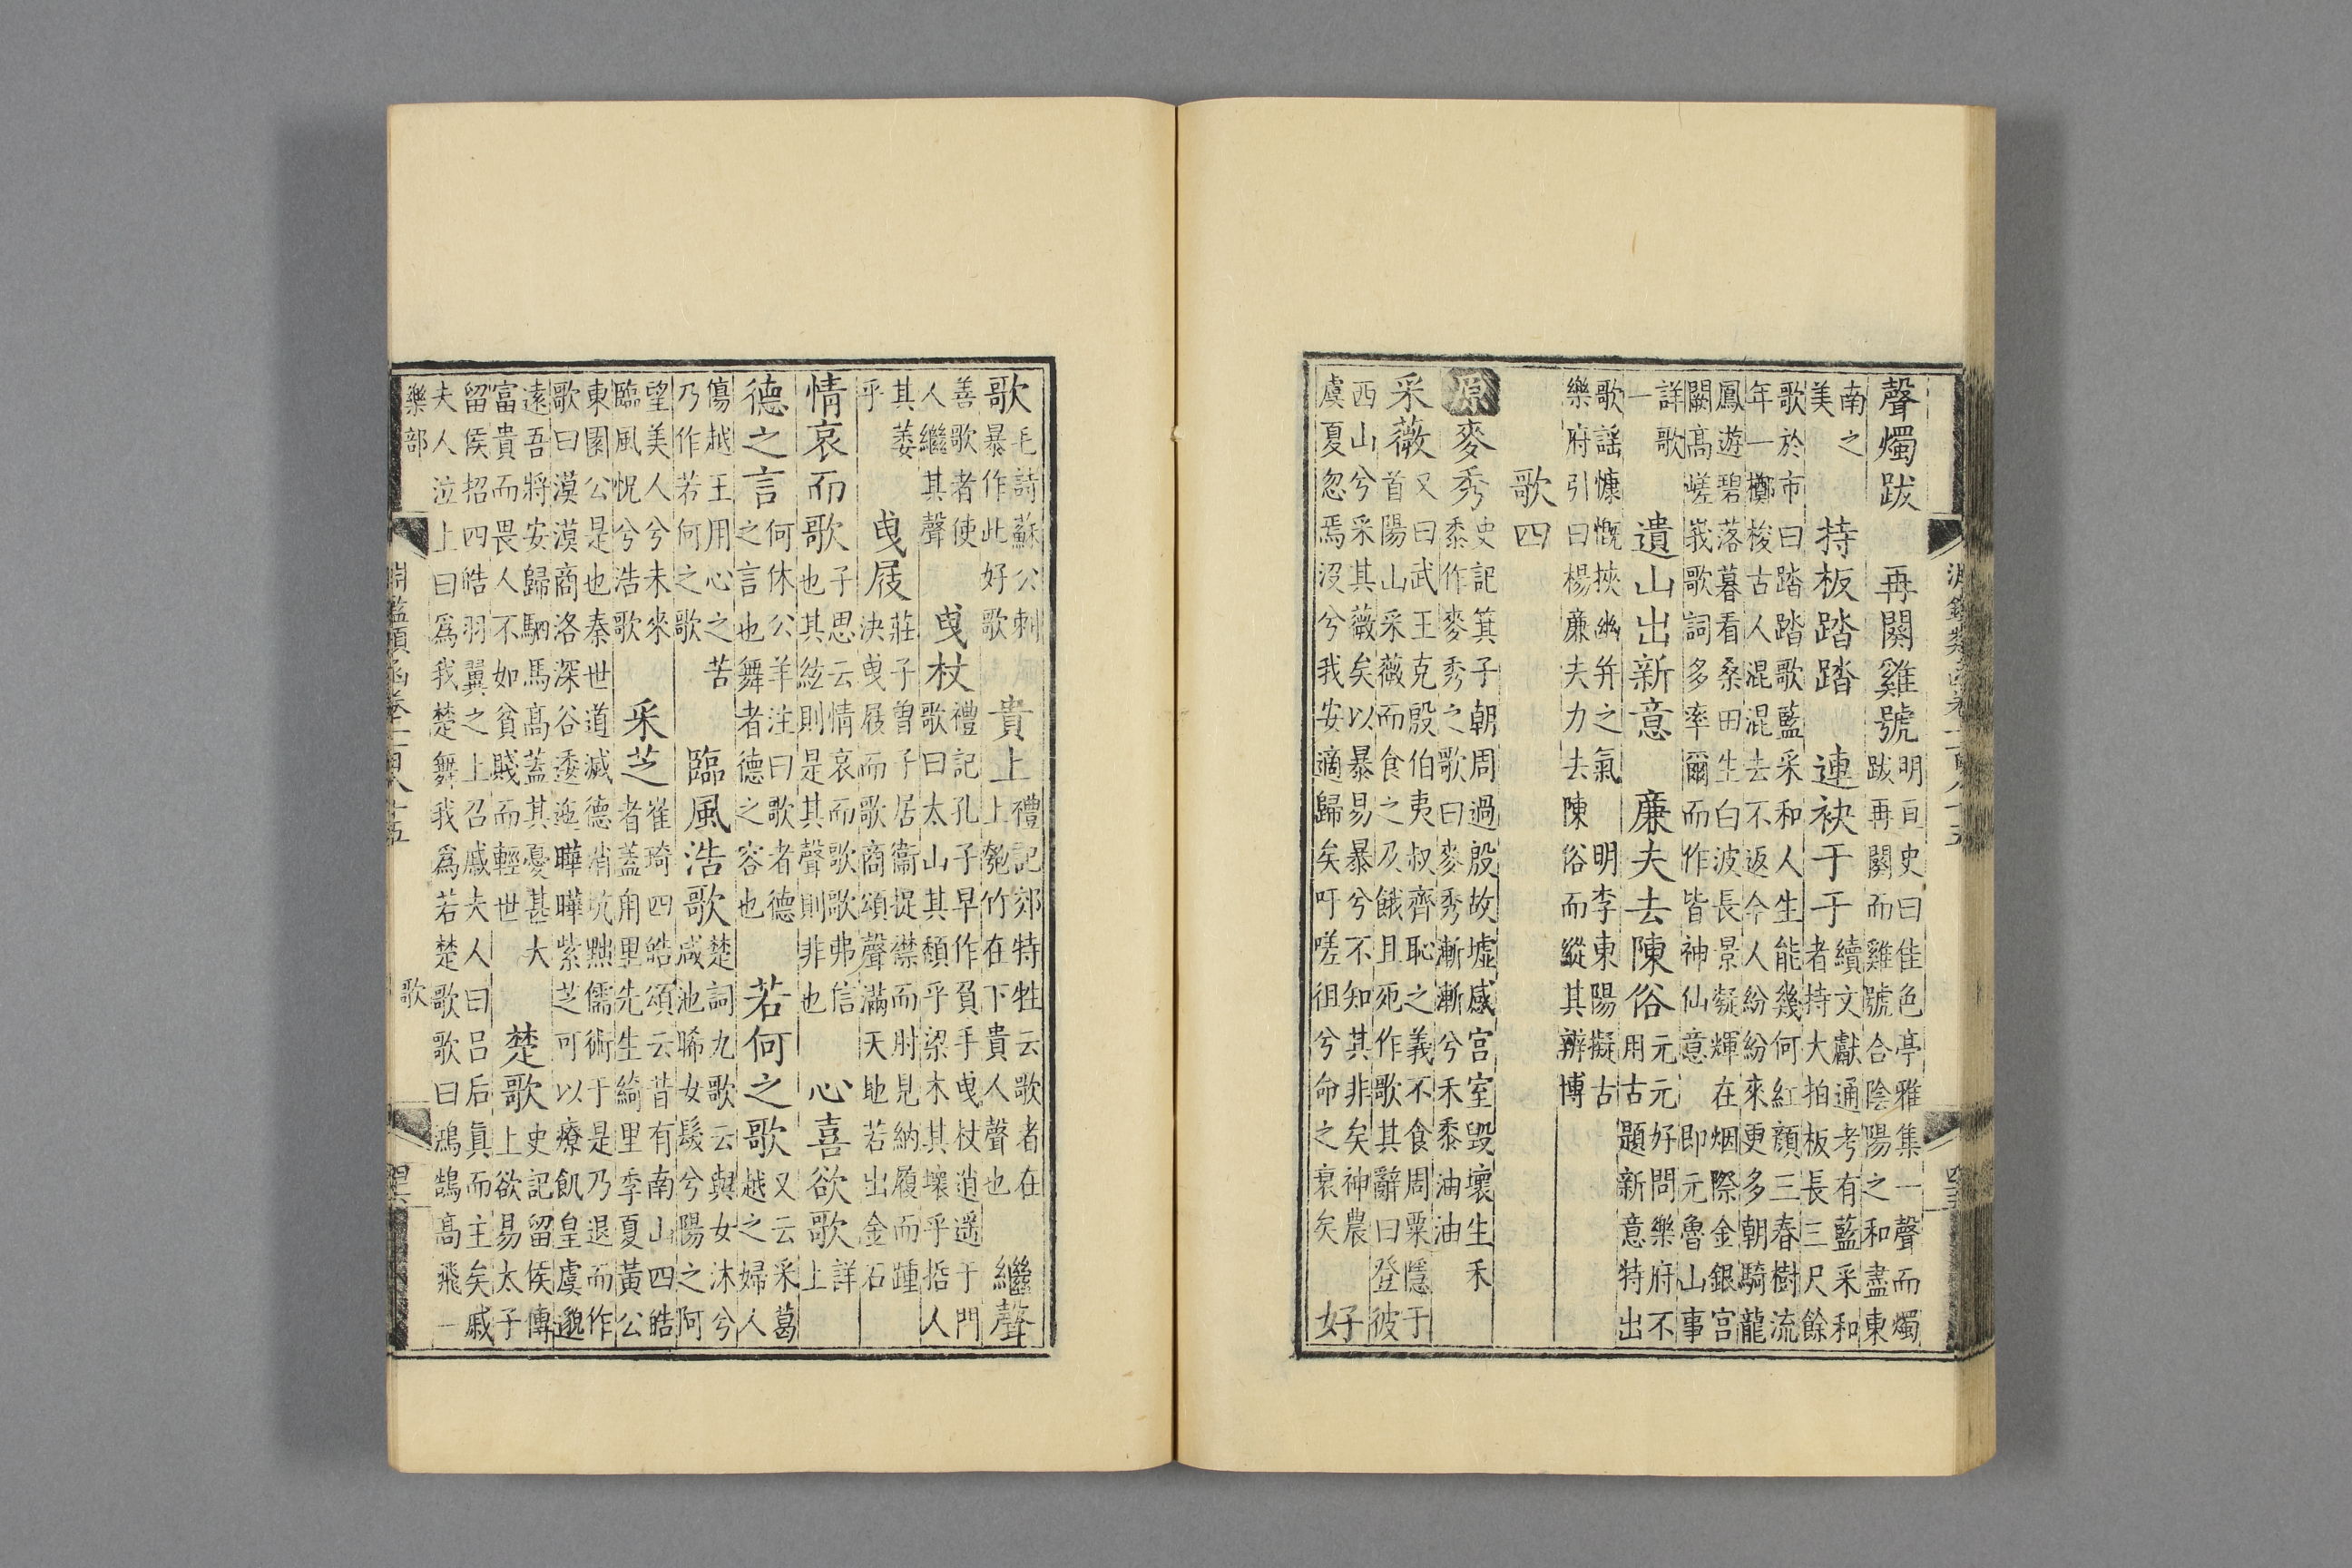 淵鑑類函卷一百八十五
聲燭跋 再闋雞號 明亘史曰佳色亭雅集一聲而燭
跋再闋而雞號合陰陽之和盡東
南之
美 持板踏踏 連袂于于 續文獻通考有藍采和
者持大拍板長三尺餘
歌於市曰踏踏歌藍采和人生能幾何紅顏三春樹流
年一擲梭古人混混去不返今人紛紛來更多朝騎龍
鳳遊碧落暮看桑田生白波長景凝輝在烟際金銀宮
闕高嵯峩歌詞多率爾而作皆神仙意 即元魯山事
詳歌
一 遺山出新意 廉夫去陳俗 元元好問樂府不
用古題新意特出
歌謠慷慨挾幽并之氣 明李東陽擬古
樂府引曰楊廉夫力去陳俗而縱其辨博
歌四
原 麥秀 史記箕子朝周過殷故墟感宮室毀壞生禾
黍作麥秀之歌曰麥秀漸漸兮禾黍油油
采薇 又曰武王克殷伯夷叔齊恥之義不食周粟隱于
首陽山采薇而食之及餓且死作歌其辭曰登彼
西山兮采其薇矣以暴易暴兮不知其非矣神農
虞夏忽焉沒兮我安適歸矣吁嗟徂兮命之衰矣 好
歌 毛詩蘇公刺
暴作此好歌 貴上 禮記郊特牲云歌者在
上匏竹在下貴人聲也 繼聲
善歌者使
人繼其聲 曳杖 禮記孔子早作負手曳杖逍遥于門
歌曰太山其頹乎梁木其壞乎哲人
其萎
乎 曳屐 莊子曾子居衛捉襟而肘見納履而踵
決曳屐而歌商頌聲滿天地若出金石
情哀而歌 子思云情哀而歌歌弗信
也其絃則是其聲則非也 心喜欲歌 詳
上
德之言 何休公羊注曰歌者德
之言也舞者德之容也 若何之歌 又云采葛
越之婦人
傷越王用心之苦
乃作若何之歌 臨風浩歌 楚詞九歌云與女沐兮
咸池晞女髮兮陽之阿
望美人兮未來
臨風怳兮浩歌 采芝 崔琦四皓頌云昔有南山四皓
者蓋甪里先生綺里季夏黃公
東園公是也秦世道滅德消坑黜儒術于是乃退而作
歌曰漠漠商洛深谷逶迤曄曄紫芝可以療飢皇虞邈
遠吾將安歸駟馬高蓋其憂甚大
富貴而畏人不如貧賤而輕世 楚歌 史記留侯傳
上欲易太子
留侯招四皓羽翼之上召戚夫人曰呂后眞而主矣戚
夫人泣上曰爲我楚舞我爲若楚歌歌曰鴻鵠高飛一
樂部 歌
淵鑑類函卷一百八十五